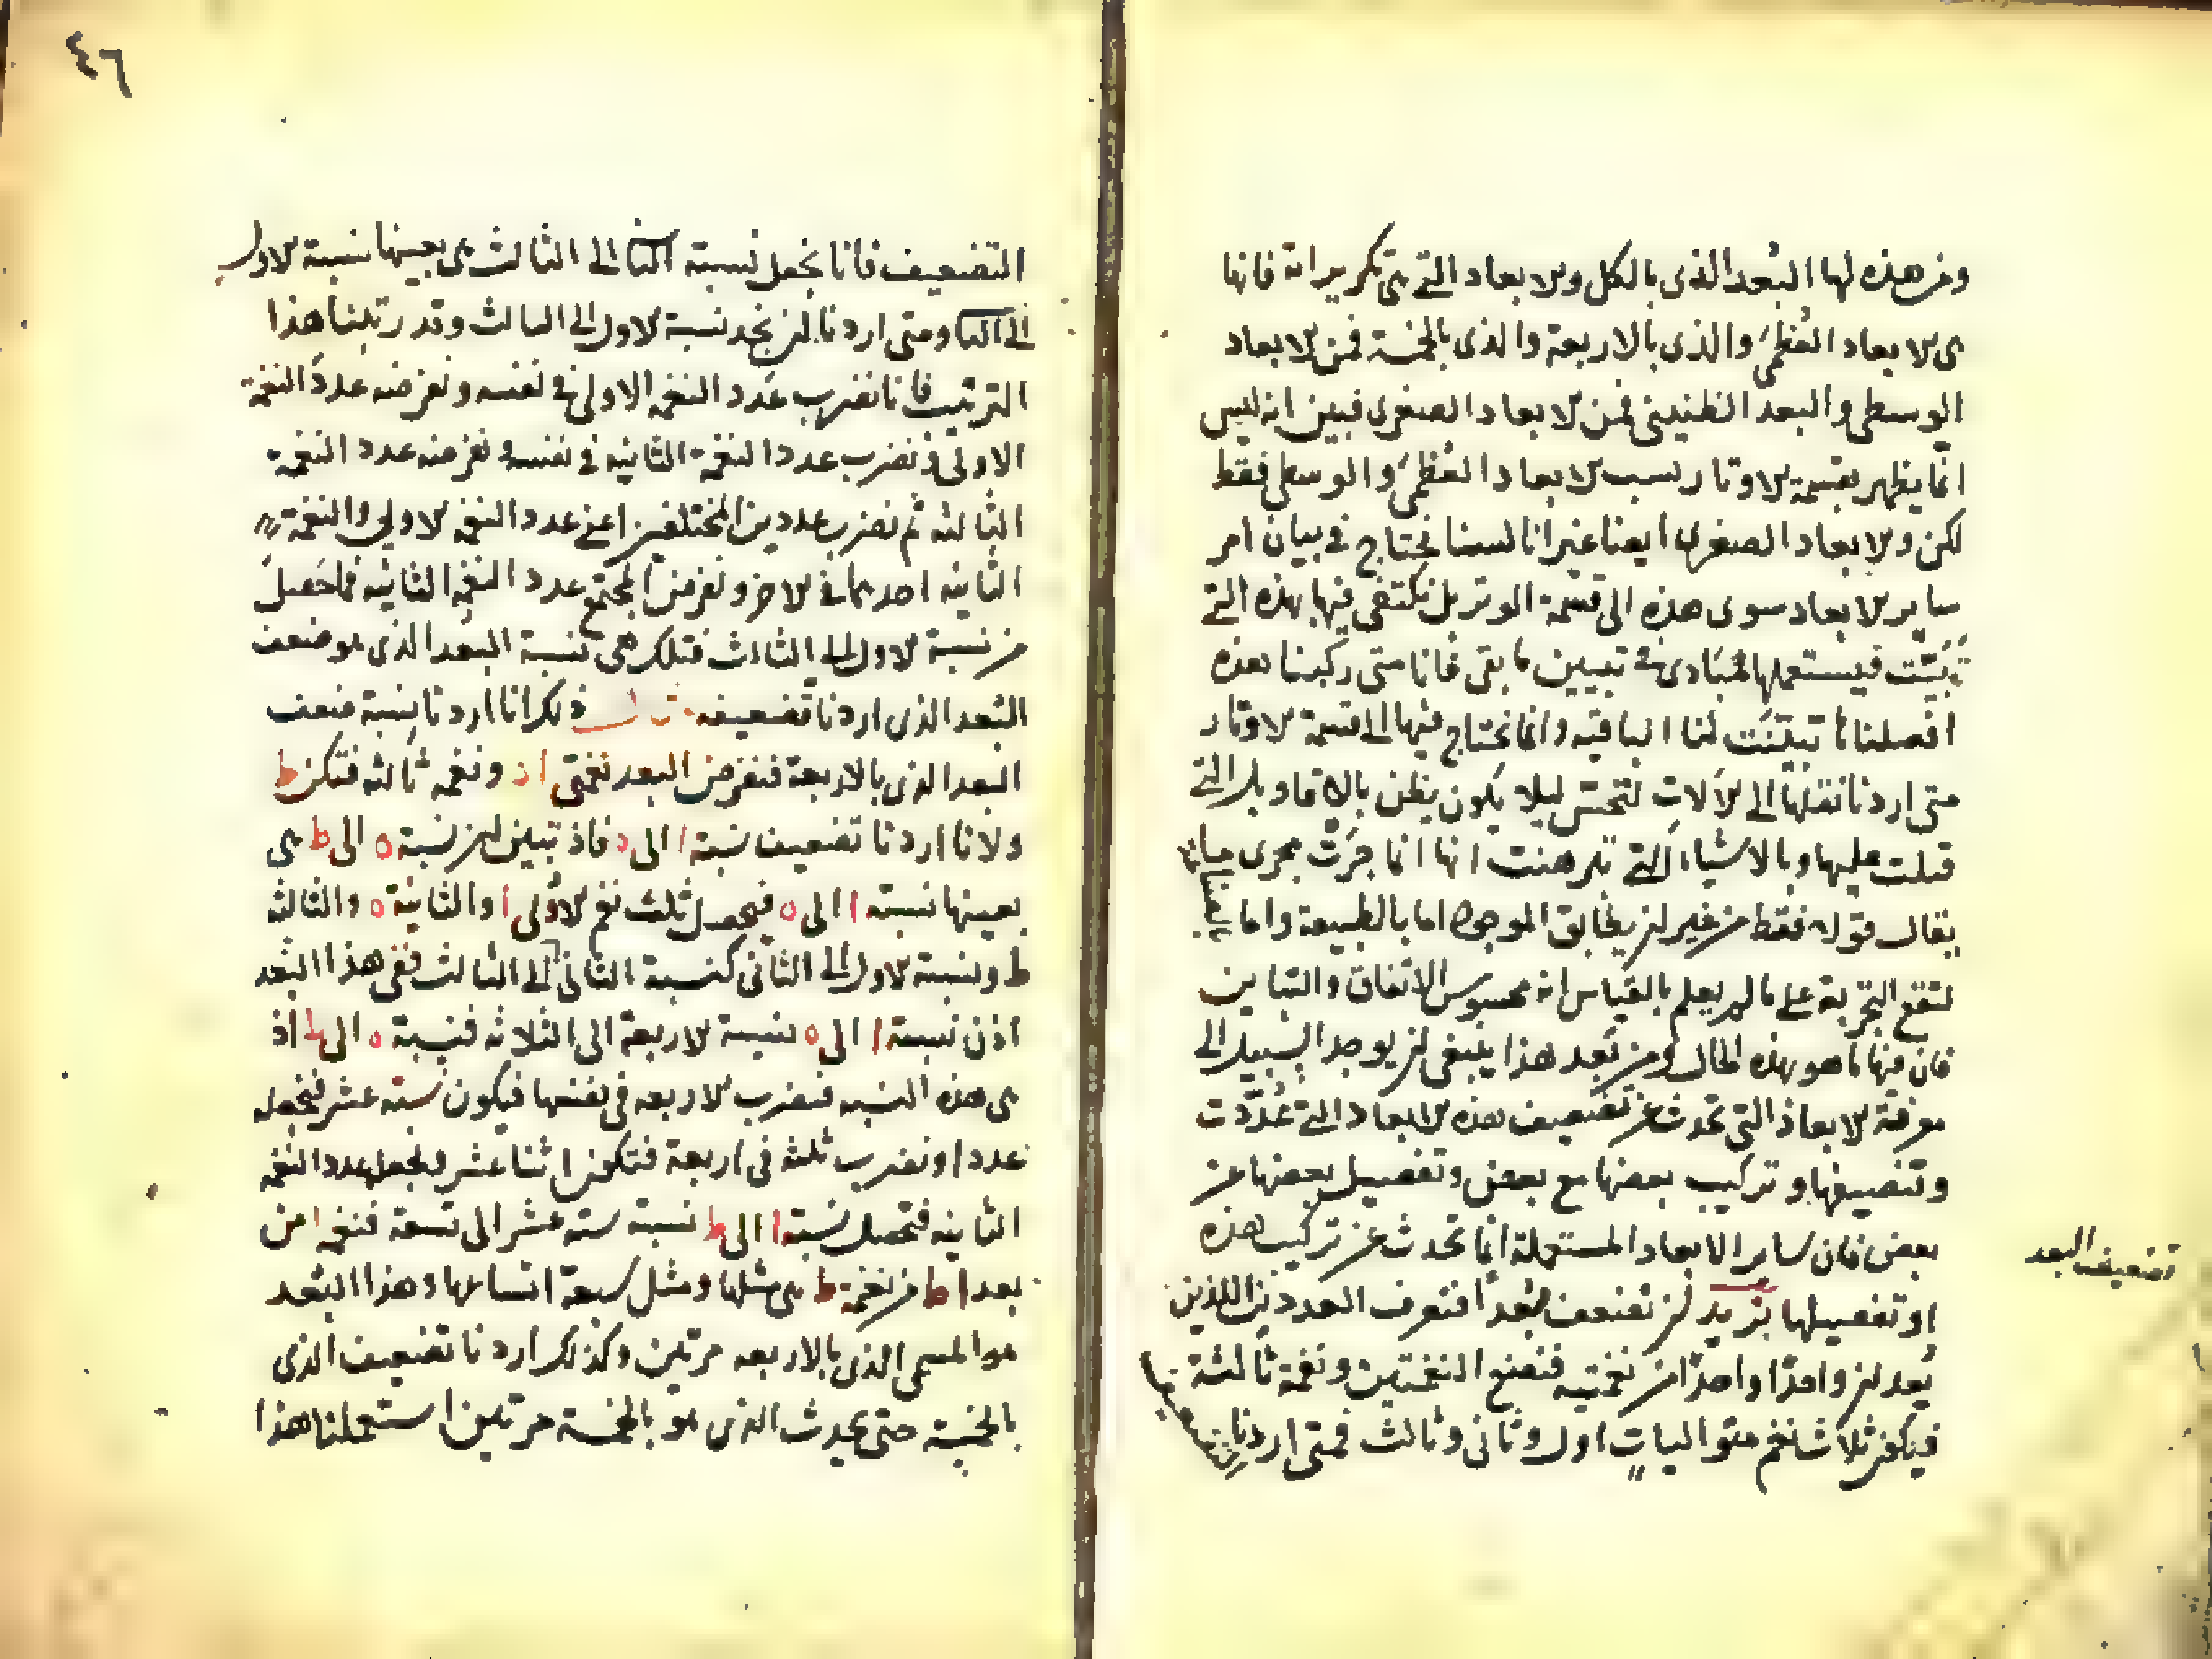 ومن هذه لها البُعد الذى بالكل والابعاد التي هي تكريراته فانها
هى الابعاد العُظمى والذى بالاربعة والذى بالخمسة فمن الابعاد
الوسطى والبعد الطنينى فمن الابعاد الصغرى فبين انه ليس
انما يظهر بقسمة الاوتار نسب الابعاد العُظمى والوسطى فقط
لكن والابعاد الصغرى ايضا غير انا لسنا نحتاج في بيان امر
ساير الابعاد سوى هذه الى قسمة الوتر بل نكتفى فيها بهذه التي
تبيّنت فيستعملها كمبادى في تبيين ما بقى فانا متى ركبنا هذه
او فصلنا تبيّنت لنا الباقيه وانما نحتاج فيها الى قسمة الاوتار
متى اردنا نقلها الى الآلات لتحسّ ليلا يكون يظن بالاقاويل التي
قيلت عليها وبالاشياء التي تبرهنت انها انما جرَت مجرى ما
يقال قولا فقط من غير ان يطابق الموجود اما بالطبيعة واما بالصناعة
لتقع التجربة على ما لم يعلم بالقياس انه محسوس الاتفاق والتباين
فان فيها ما هو بهذه الحال ومن بَعد هذا ينبغى ان يوجد السبيل الى
معرفة الابعاد التى تحدث عن تضعيف هذه الابعاد التي عُدّدت
وتنصيفها وتركيب بعضها مع بعض وتفصيل بعضها عن
بعض فان ساير الابعاد المستعملة انما تحدث عن تركيب هذه
تضعيف البعد
او تفصيلها نريد ان نضعف بُعداً فنعرف العددين اللذين
يُعدان واحدًا واحدًا من نغمتيه فنضع النغمتين ونغمة ثالثة
فيكون ثلاث نغم متواليات اول وثانى وثالث فمتى اردنا التضعيف
٤٦
التضعيف فانا نجعل نسبة الثانى الى الثالث هى بعينها نسبة الاول
الى الثانى ومتى اردنا ان نجد نسبة الاول الى الثالث وقد رتبنا هذا
الترتيب فانا نضرب عَدد النغمة الاولى في نفسه ونفرضه عددَ النغمة
الاولى ونضرب عدد النغمة الثانيه في نفسه ونفرضه عدد النغمة
الثالثه ثم نضرب عددين المختلفين اعنى عدد النغمة الاولى والنغمة
الثانيه احدهما في الاخر ونفرض المجتمع عدد النغمة الثانيه فما حَصلَ
من نسبة الاول الى الثالث فتلك هى نسبة البُعد الذى هو ضعف
البُعد الذى اردنا تضعيفه مثال ذلك انا اردنا نسبة ضعف
البعد الذى بالاربعة فنفرض البعد نغمتى ا ه ونغمه ثالثه فتكن ط
ولانا اردنا تضعيف نسبة ا الى ه فاذ تبين ان نسبة ه الى ط هى
بعينها نسبة ا الى ه فيحصل ثلث نغم الاولى ا والثانية ه والثالثه
ط ونسبة الاول الى الثانى كنسبة الثانى الى الثالث ففى هذا البُعد
اذن نسبة ا الى ه نسبة الاربعة الى الثلاثه فنسبة ه الى ط اذ
هى هذه النسبه فنضرب الاربعه فى نفسها فيكون ستة عشر فنجعله
عدد ا ونضرب ثلثه فى اربعة فتكون اثنا عشر ونجعله عدد النغمة
الثانيه فتحصل نسبة ا الى ط نسبة ستة عشر الى تسعة فنغمة ا من
بعد ا ط من نغمة ط هى مثلها ومثل سبعة اتساعها وهذا البُعد
هو المسمى الذى بالاربعه مرتين وكذلك اردنا تضعيف الذى
بالخمسة حتى يحدث الذى هو بالخمسة مرتين استعملنا هذا